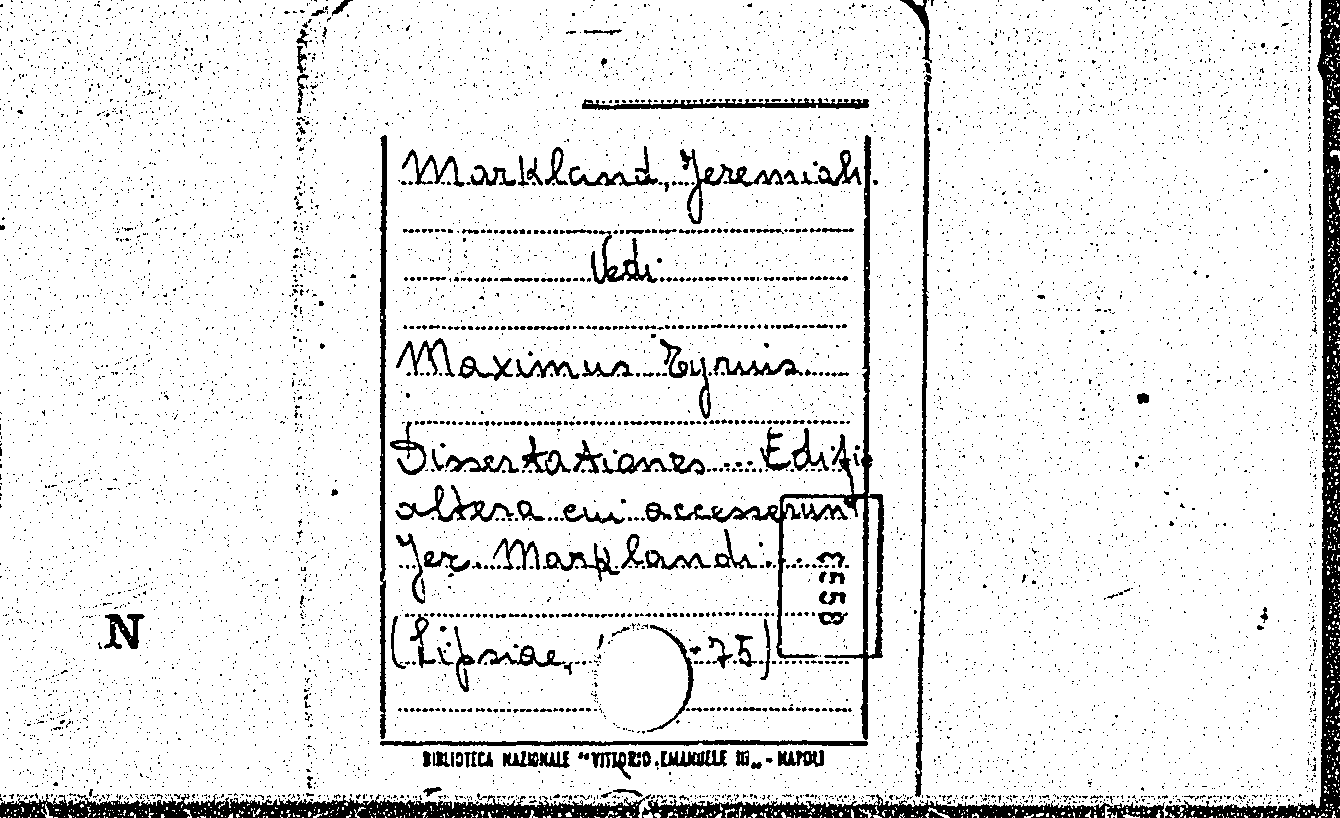 Markland, Jeremiah.
Vedi
Maximus Tyrius.
Dissertationes ... Editio
altera cui accesserunt
Jer. Marklandi ...
(Lipsiae, -75)
3558
N
BIBLIOTECA NAZIONALE "VITTORIO EMANUELE III" - NAPOLI